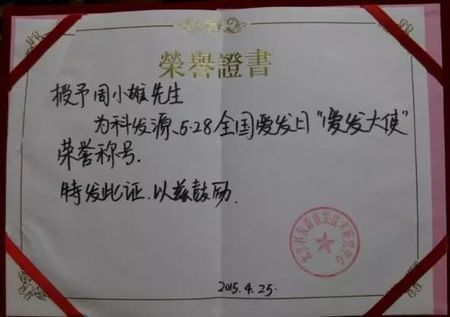 榮譽證書
授予周小雄先生
为科发源、5·28全国爱发日"爱发大使"
荣誉称号.
特发此证.以兹鼓励.
2015.4.25.